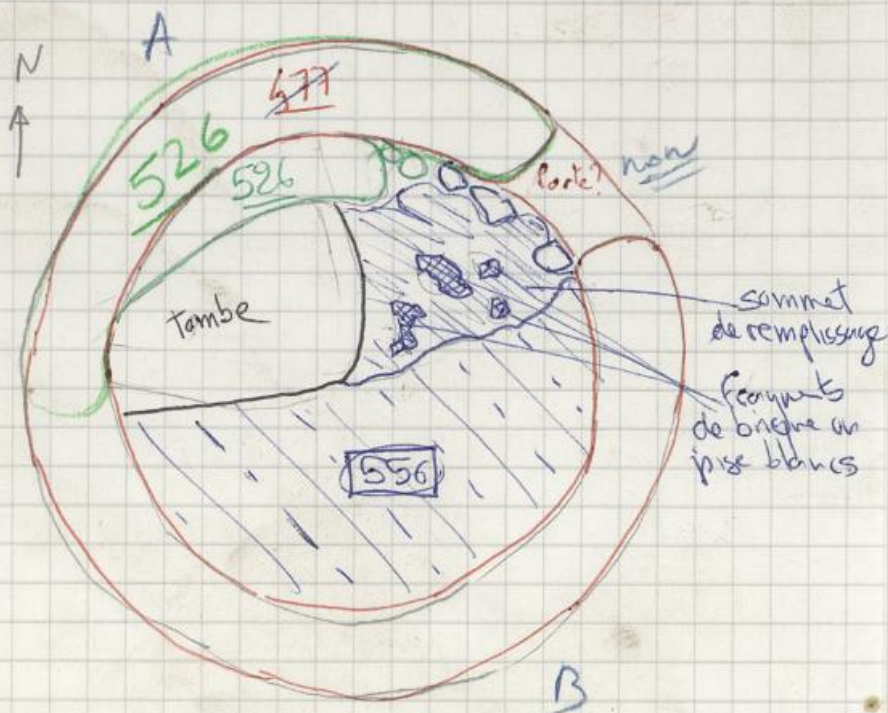 A
N
477
526
526
Porte?
non
Tombe
sommet
de remplissage
fragments
de brique ou
pisé blancs
556
B